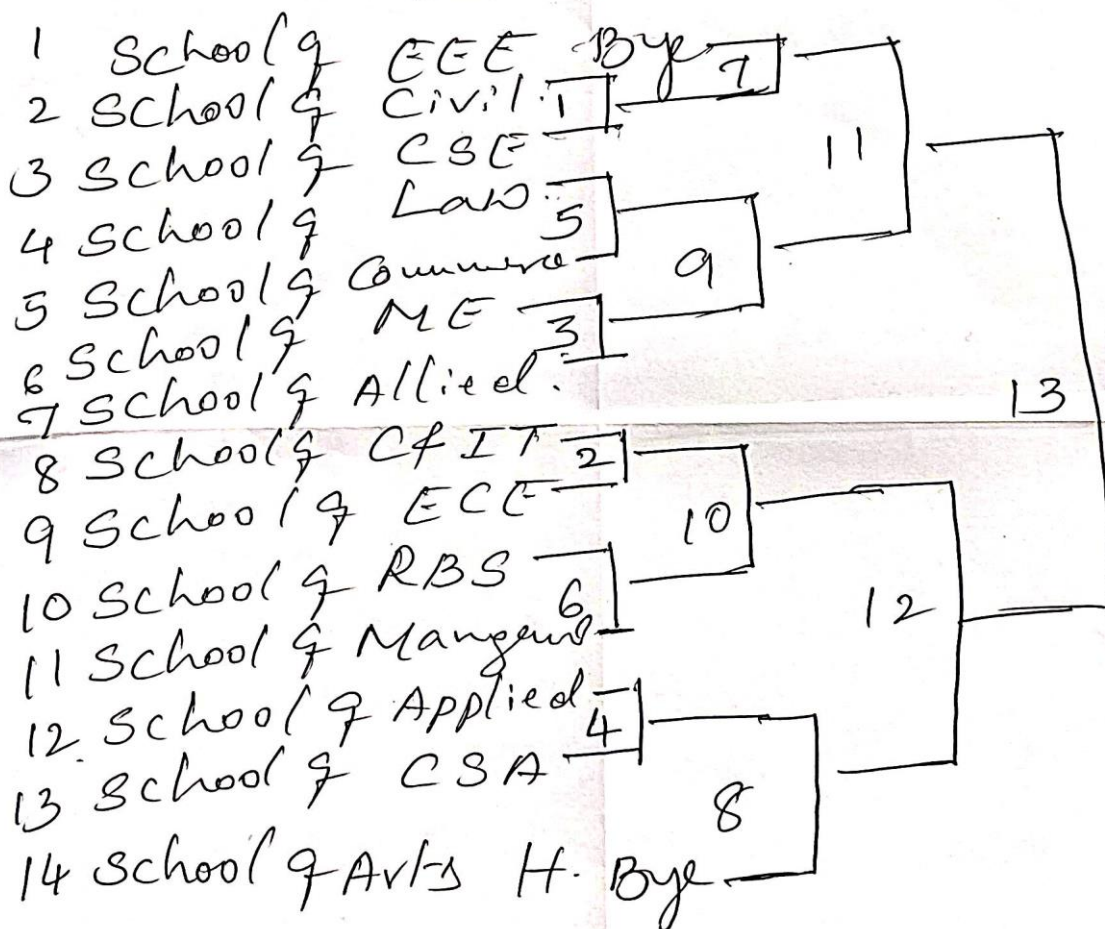 1 School of EEE Bye 7
2 School of Civil. 1
3 School of CSE 11
4 School of Law. 5
5 School of Commerce 9
6 School of ME 3
7 School of Allied. 13
8 School of C & IT 2
9 School of ECE 10
10 School of RBS 6 12
11 School of
12 School of Applied 4
13 School of CSA 8
14 School of Arts H. Bye